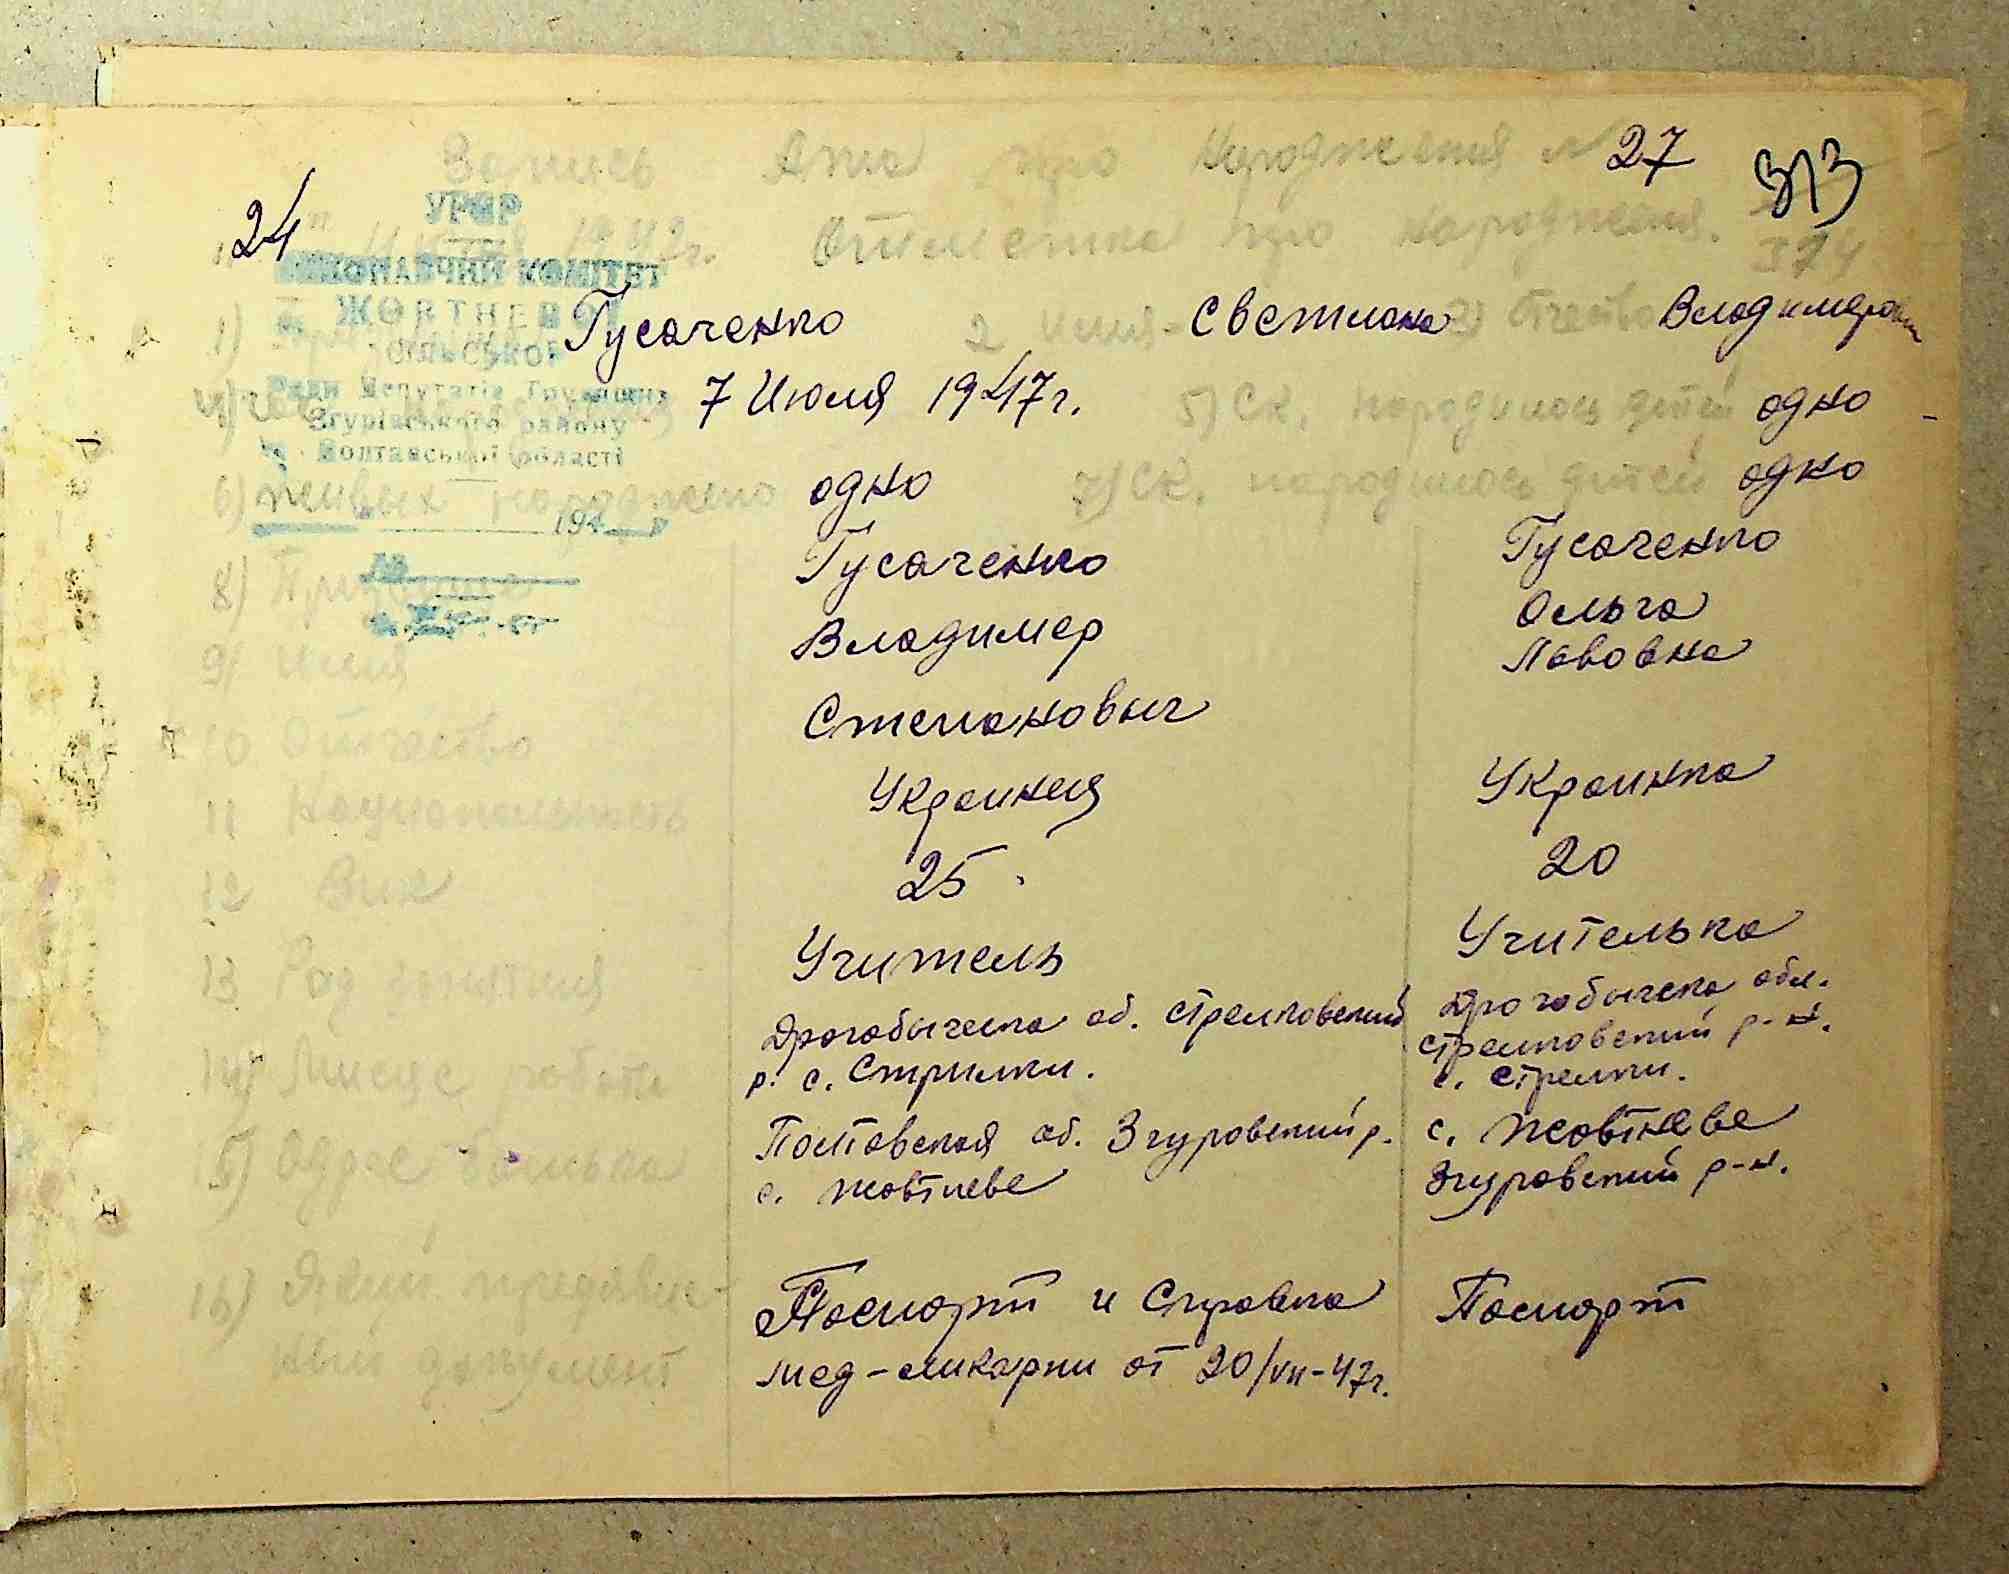 Запись Акта про народження № 27
313
24 " июля 1947г. Отметка про народження.
374
УРСР
ВИКОНАВЧИЙ КОМІТЕТ
ЖОВТНЕВОЇ
сільської
Ради Депутатів Трудящих
Згурівського району
Полтавської області
194
1) Гусаченко 2 Имя Светлана 3) Отчество Владимировн
4) 7 Июля 1947г. 5) Ск. народилось дітей одно
6) живых народжено одно 7) Ск. народилось дітей одно
8) Гусаченко Гусаченко
9) Имя Владимер Ольга
Львовна
10 Отчество Степановыч
11 Национальность Украинец Украинка
12 Вик 25 20
13 Род занятия Учитель Учителька
14) Мисце роботи Дрогобыческа об. Стрелковский Дрогобыческа обл.
р. с. Стрилки. Стрелковский р-н.
с. Стрелки.
15) Адрес батька Полтавская об. Згуровский р. с. Жовтневе
с. Жовтневе Згуровский р-н.
16) Який предявле- Паспорт и Справка Паспорт
ний документ мед-ликарни от 20/VII-47г.